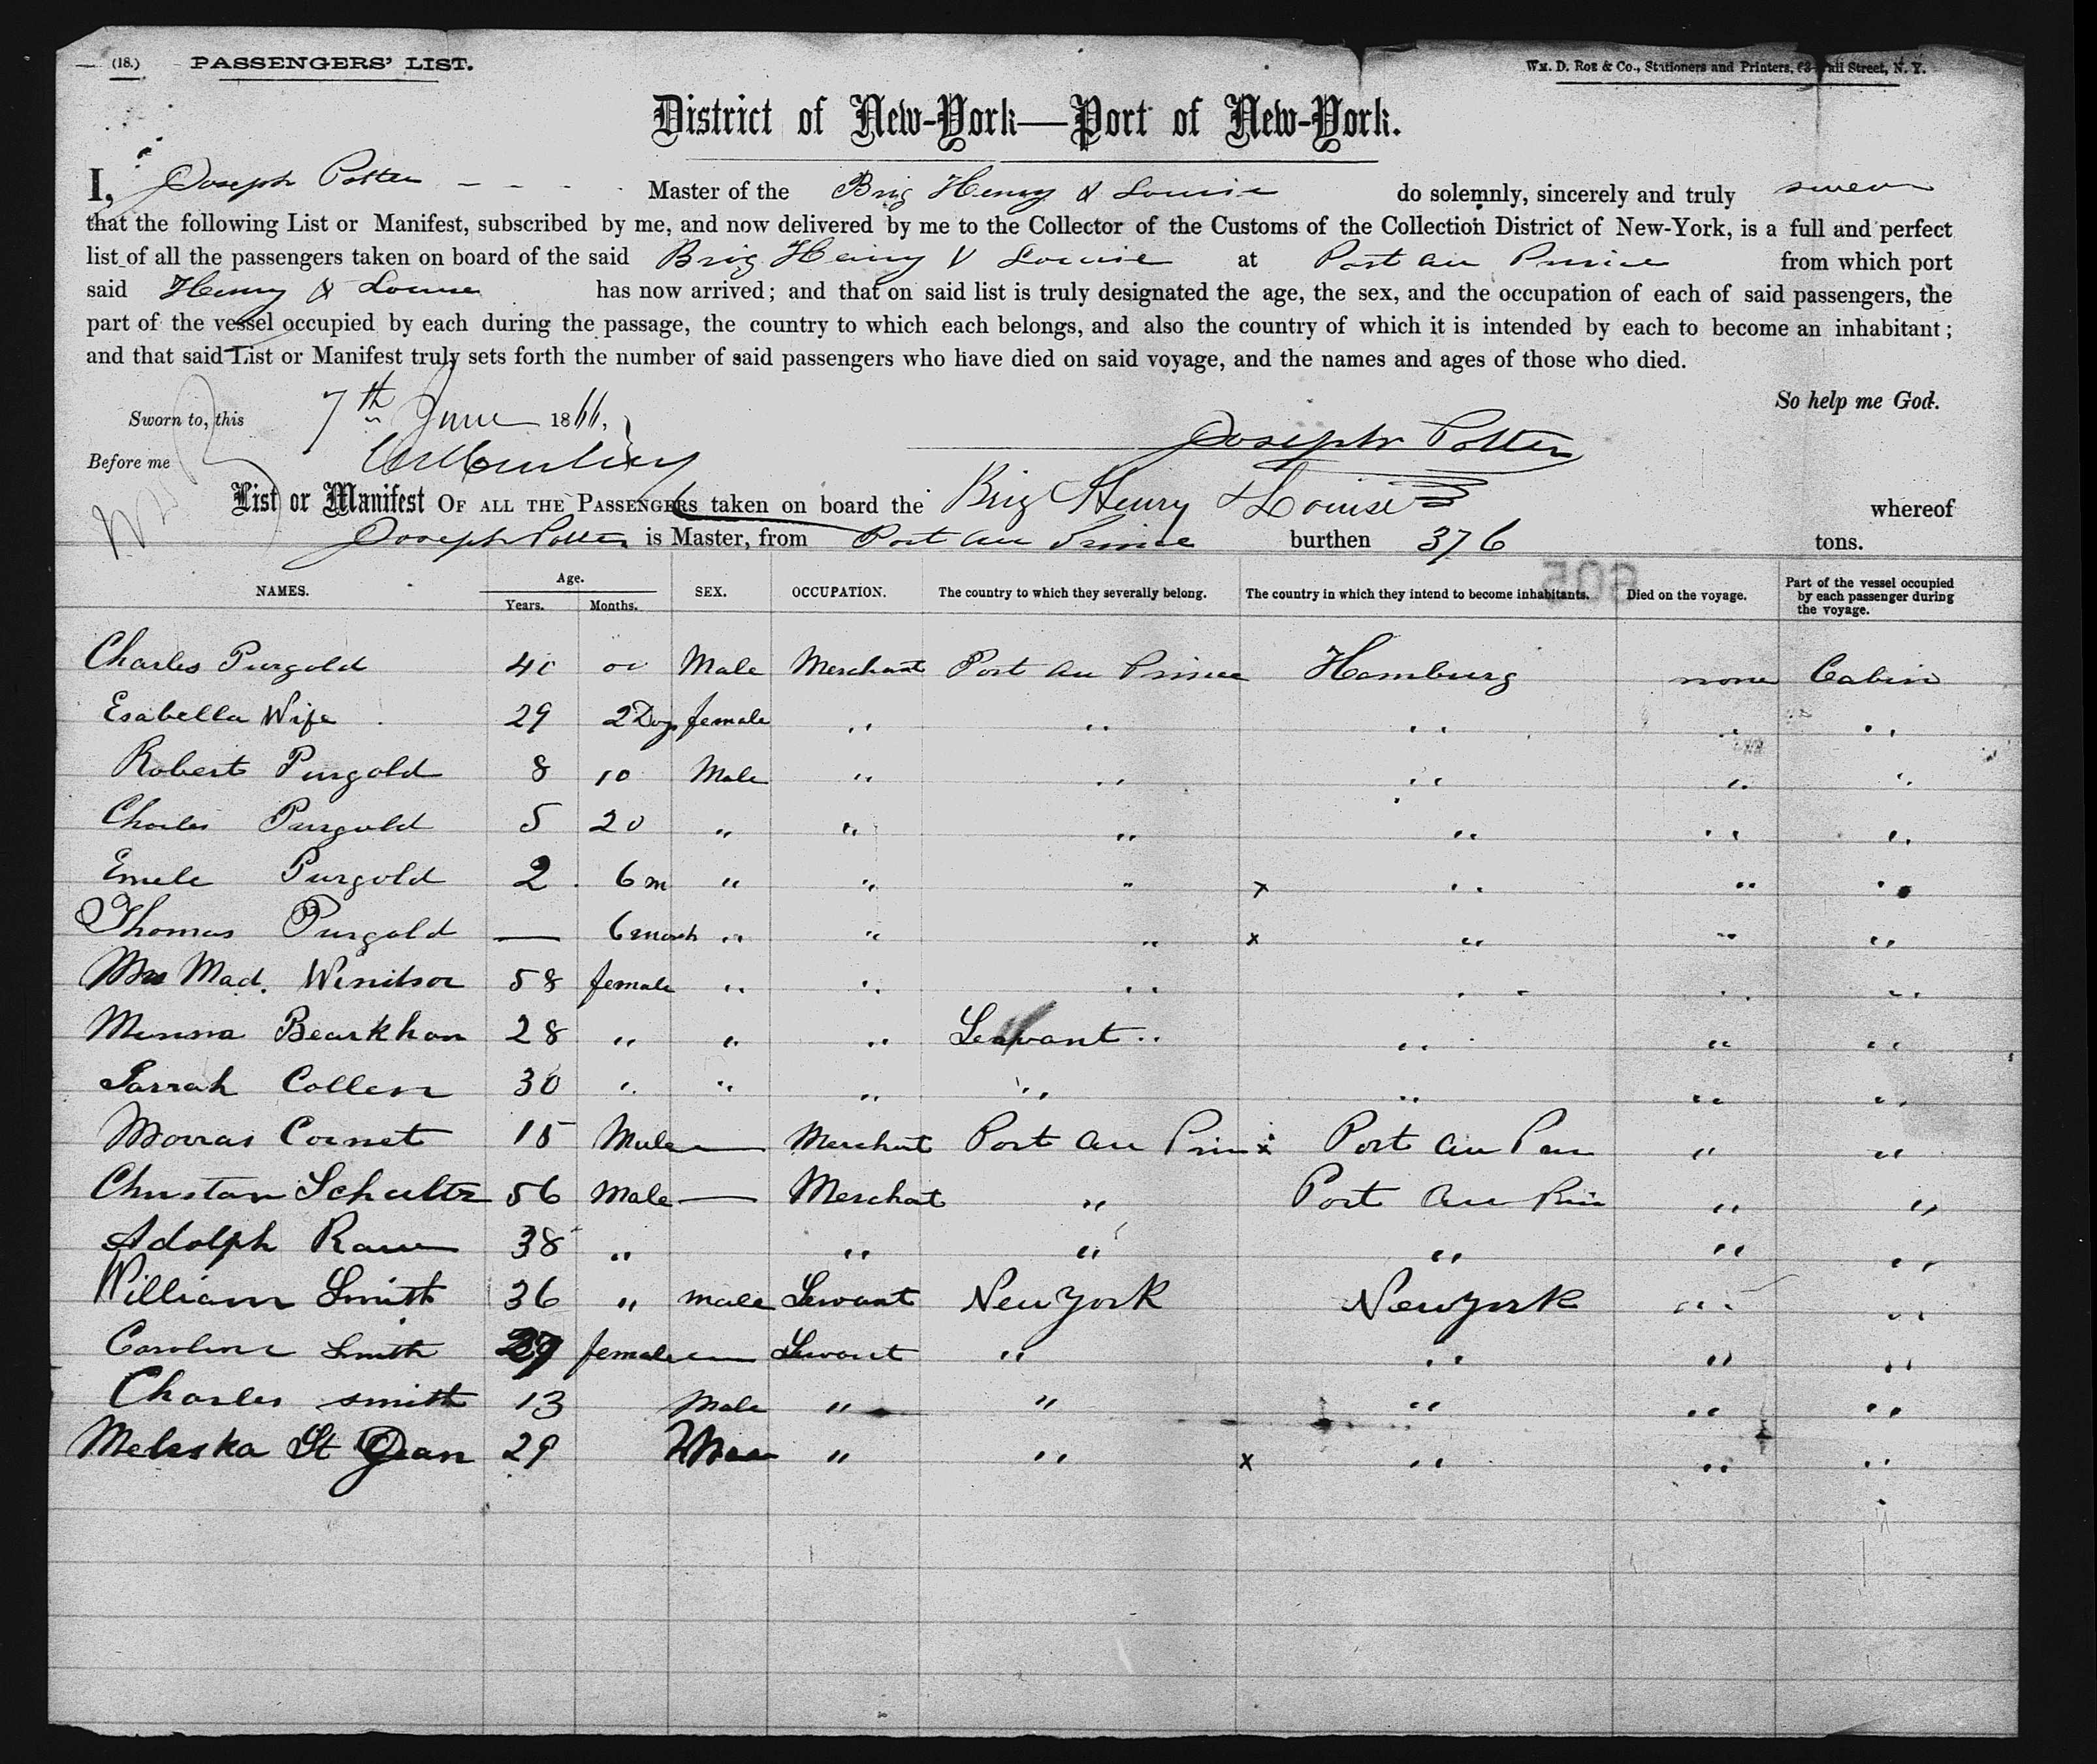 (18.) PASSENGERS' LIST. Wm. D. Roe & Co., Stationers and Printers, Wall Street, N. Y.
District of New-York—Port of New-York.
I, Joseph Potter - - - - Master of the Brig Henry & Louise do solemnly, sincerely and truly swear
that the following List or Manifest, subscribed by me, and now delivered by me to the Collector of the Customs of the Collection District of New-York, is a full and perfect
list of all the passengers taken on board of the said Brig Henry & Louise at Port au Prince from which port
said Henry & Louise has now arrived; and that on said list is truly designated the age, the sex, and the occupation of each of said passengers, the
part of the vessel occupied by each during the passage, the country to which each belongs, and also the country of which it is intended by each to become an inhabitant;
and that said List or Manifest truly sets forth the number of said passengers who have died on said voyage, and the names and ages of those who died.
So help me God.
Sworn to, this 7th June 1866.
Joseph Potter
Before me
List or Manifest OF ALL THE PASSENGERS taken on board the Brig Henry & Louise whereof
Joseph Potter is Master, from Port au Prince burthen 376 tons.
NAMES. Age. Years. Months. SEX. OCCUPATION. The country to which they severally belong. The country in which they intend to become inhabitants. Died on the voyage. Part of the vessel occupied by each passenger during the voyage.
Charles Purgold 40 00 Male Merchant Port au Prince Hamburg none Cabin
Esabella Wife 29 2 Dys female " " " " "
Robert Purgold 8 10 Male " " " " "
Charles Purgold 5 20 " " " " " "
Emele Purgold 2 6 m " " " x " " "
Thomas Purgold — 6 month " " " x " " "
Mad. Windsor 58 female " " " " " "
Minna Bearkhan 28 " " " Servant " " " "
Sarrah Collen 30 " " " " " " "
Morras Cornet 15 Male — Merchant Port au Prin x Port au Prin " "
Christan Schultz 56 Male — Merchat " Port au Prin " "
Adolph Rauw 38 " " " " " "
William Smith 36 " male Servant New York New York " "
Caroline Smith 29 female — Servant " " " "
Charles Smith 13 Male " " " " "
Meleska St Jean 29 " " x " " "